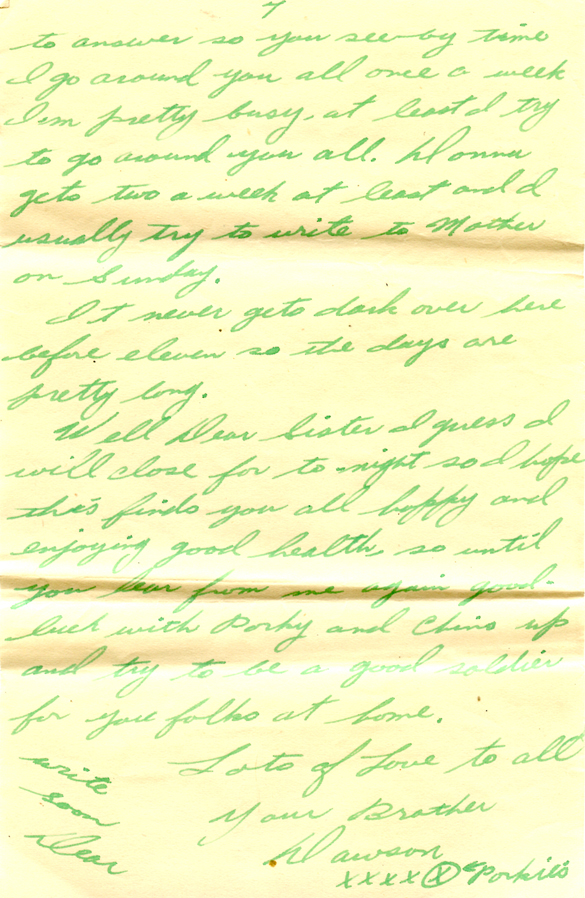 7
to answer so you see by time
I go around you all once a week
I'm pretty busy, at least I try
to go around you all. Donna
gets two a week at least and I
usually try to write to Mother
on Sunday.
It never gets dark over here
before eleven so the days are
pretty long.
Well Dear Sister I guess I
will close for to-night so I hope
this finds you all happy and
enjoying good health, so until
you hear from me again good-
luck with Porky and Chins up
and try to be a good soldier
for you folks at home.
Lots of Love to all
Your Brother
Dawson
xxxx ⓧ Porkie's
write
soon
Dear